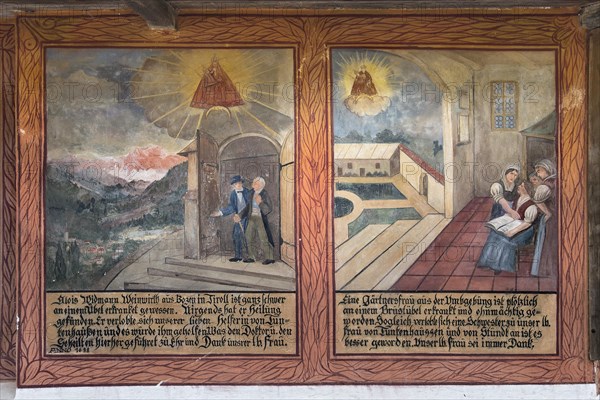 Alois Widmann Weinwirth aus Bozen in Tiroll ist ganz schwer
an einem Übel erkranket gewesen. Nirgends hat er Heilung
gefunden. Er verlobte sich unserer lieben Helferin von Tün-
tenhaußen und es würde ihm geholfen. Was den Doktor u. den
Geheilten hierher geführet zu Ehr und Dank unsrer lb. Frau.
Eine Gärtnersfrau aus der Umgebung ist plötzlich
an einem Brustübel erkrankt und ohnmächtig ge-
worden. Sogleich verlobt sich eine Schwester zu unser lb.
Frau von Tüntenhaussen und von Stund an ist es
besser geworden. Unser lb. Frau sei immer Dank.